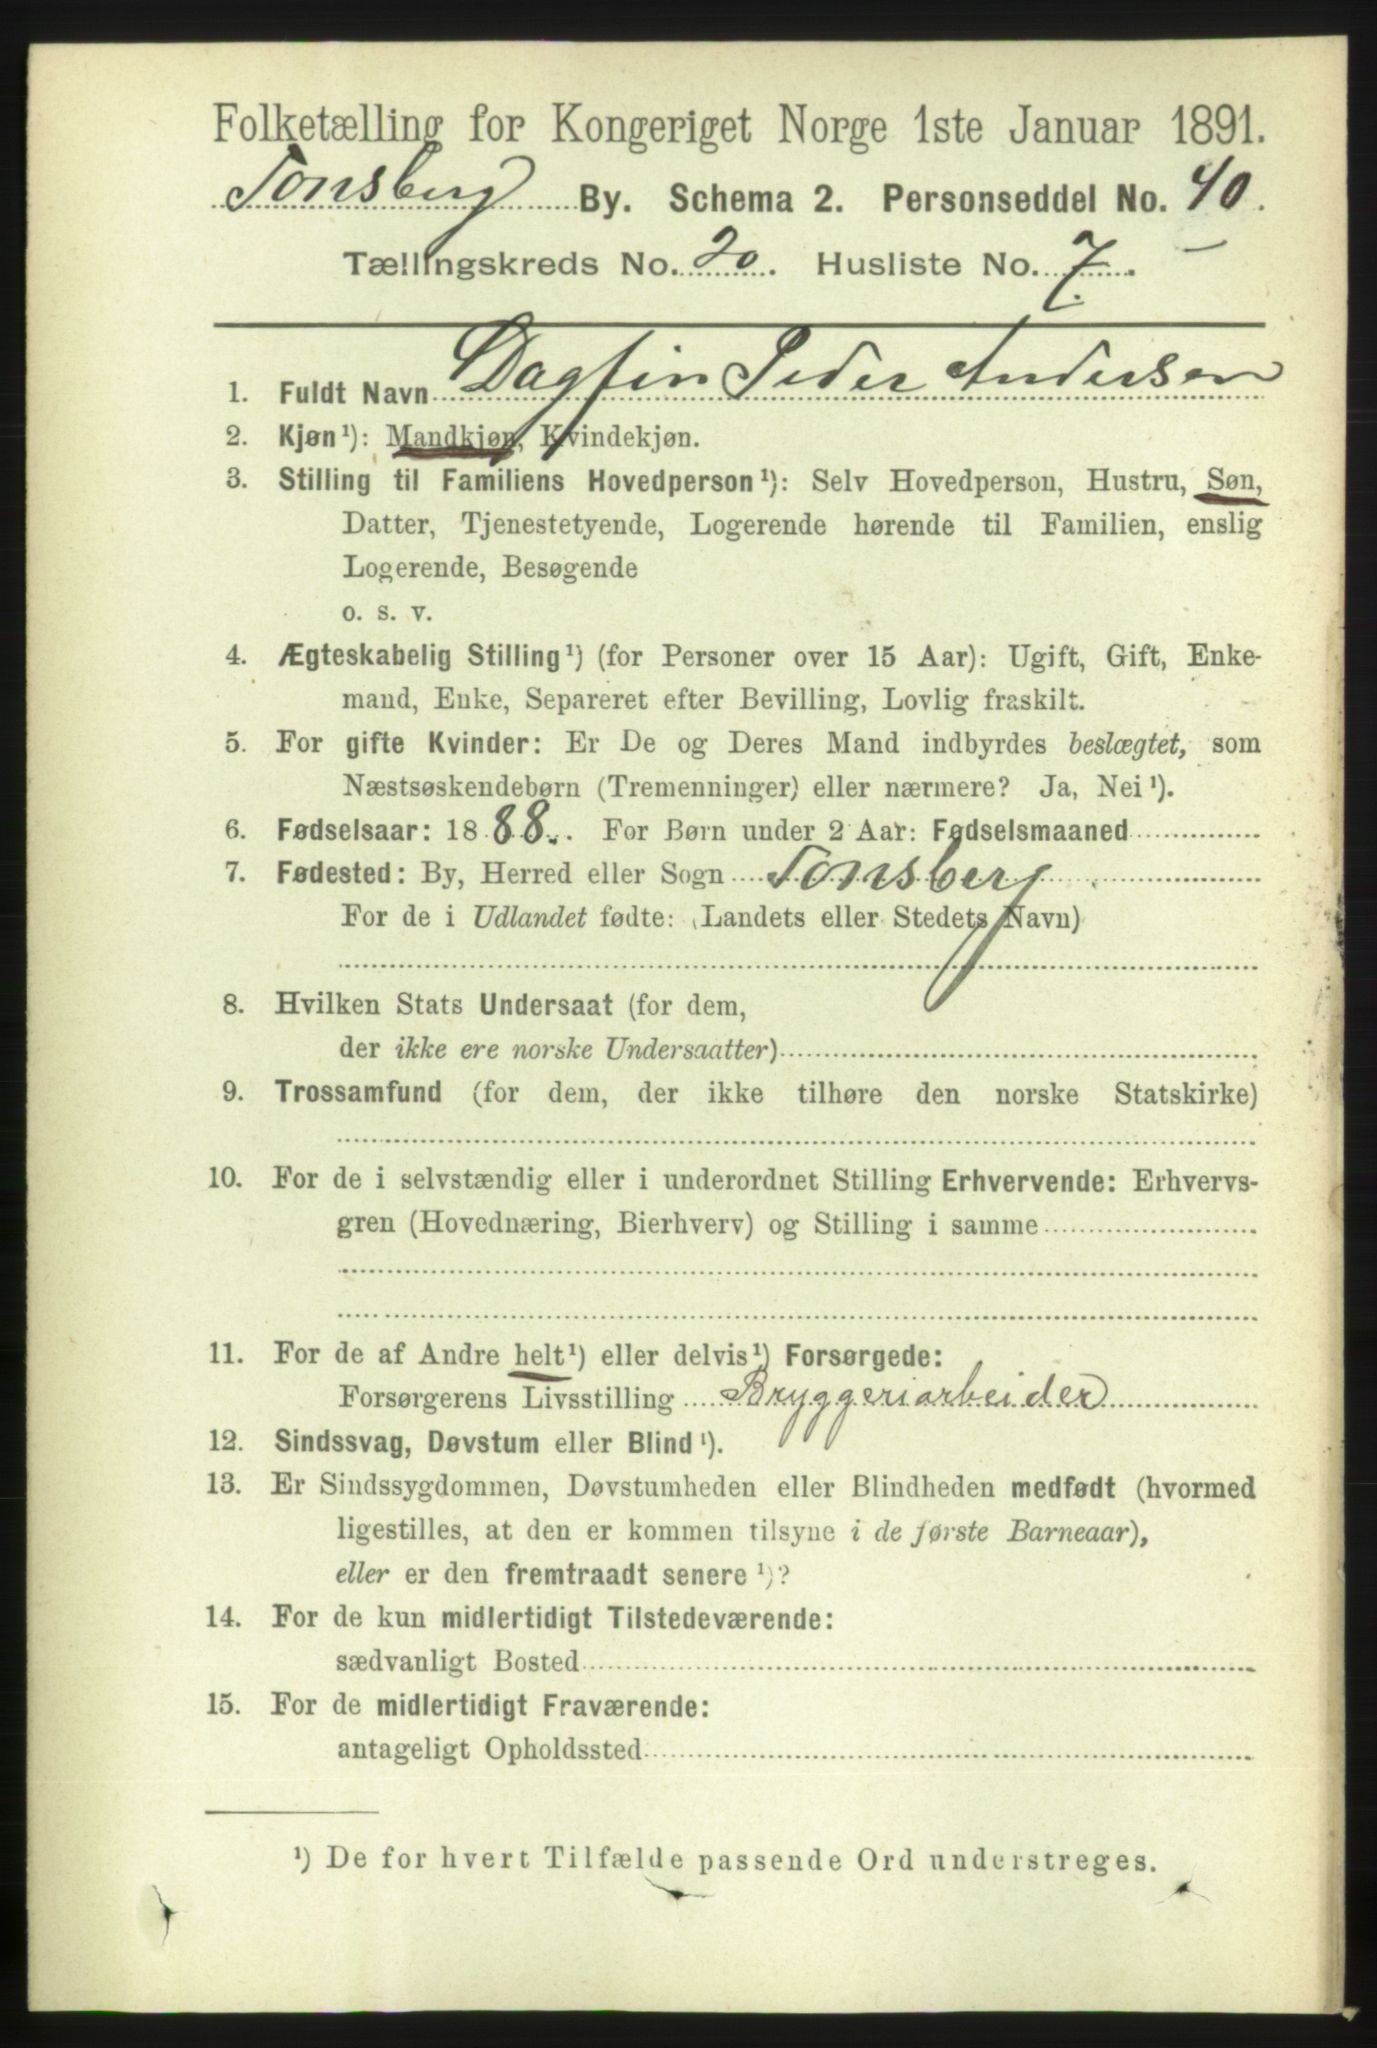 Folketælling for Kongeriget Norge 1ste Januar 1891.
Tønsberg By. Schema 2. Personseddel No. 40.
Tællingskreds No. 20. Husliste No. 7.
1. Fuldt Navn Dagfin Peder Andersen
2. Kjøn¹): Mandkjøn, Kvindekjøn.
3. Stilling til Familiens Hovedperson¹): Selv Hovedperson, Hustru, Søn,
Datter, Tjenestetyende, Logerende hørende til Familien, enslig
Logerende, Besøgende
o. s. v.
4. Ægteskabelig Stilling¹) (for Personer over 15 Aar): Ugift, Gift, Enke-
mand, Enke, Separeret efter Bevilling, Lovlig fraskilt.
5. For gifte Kvinder: Er De og Deres Mand indbyrdes beslægtet, som
Næstsøskendebørn (Tremenninger) eller nærmere? Ja, Nei¹).
6. Fødselsaar: 1888. For Børn under 2 Aar: Fødselsmaaned
7. Fødested: By, Herred eller Sogn Tønsberg
For de i Udlandet fødte: (Landets eller Stedets Navn)
8. Hvilken Stats Undersaat (for dem,
der ikke ere norske Undersaatter)
9. Trossamfund (for dem, der ikke tilhøre den norske Statskirke)
10. For de i selvstændig eller i underordnet Stilling Erhvervende: Erhvervs-
gren (Hovednæring, Bierhverv) og Stilling i samme
11. For de af Andre helt¹) eller delvis¹) Forsørgede:
Forsørgerens Livsstilling Bryggeriarbeider
12. Sindssvag, Døvstum eller Blind¹).
13. Er Sindssygdommen, Døvstumheden eller Blindheden medfødt (hvormed
ligestilles, at den er kommen tilsyne i de første Barneaar),
eller er den fremtraadt senere¹)?
14. For de kun midlertidigt Tilstedeværende:
sædvanligt Bosted
15. For de midlertidigt Fraværende:
antageligt Opholdssted
¹) De for hvert Tilfælde passende Ord understreges.